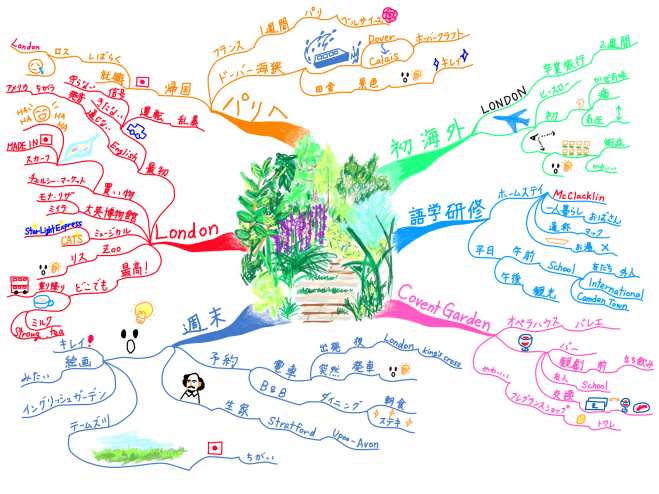 初海外
LONDON
卒業旅行
2週間
ヒースロー
初
かぜ気味
歯
気圧
街並
かわいい
語学研修
ホームステイ
McClacklin
一人暮らし
おばさん
通称
マック
お湯
×
平日
午前
School
友だち
外人
International
Camden Town
午後
観光
Covent Garden
オペラハウス
バレエ
バー
観劇
前
立ち飲み
友人
School
交換
かわいい
フレグランスショップ
トワレ
週末
予約
電車
出発
後
London
king's cross
突然
発車
B&B
ダイニング
朝食
ステキ
生家
Stratford
Upon-Avon
絵画
キレイ
みたい
イングリッシュガーデン
テームズ川
ちがい
London
最初
運転
乱暴
信号
守らない
English
きたない
通じない
発音
アメリカ
ちがう
買い物
HA
HA
HA
HA
MADE IN
スカーフ
チェルシー・マーケット
大英博物館
モナ・リザ
ミイラ
ミュージカル
StarLightExpress
CATS
Zoo
リス
最高!
どこでも
乗り降り
ミルク
Strong
tea
パリへ
フランス
1週間
パリ
ベルサイユ
ドーバー海狭
Dover
Calais
ホーバークラフト
田舎
景色
キレイ
帰国
就職
しばらく
ロス
London